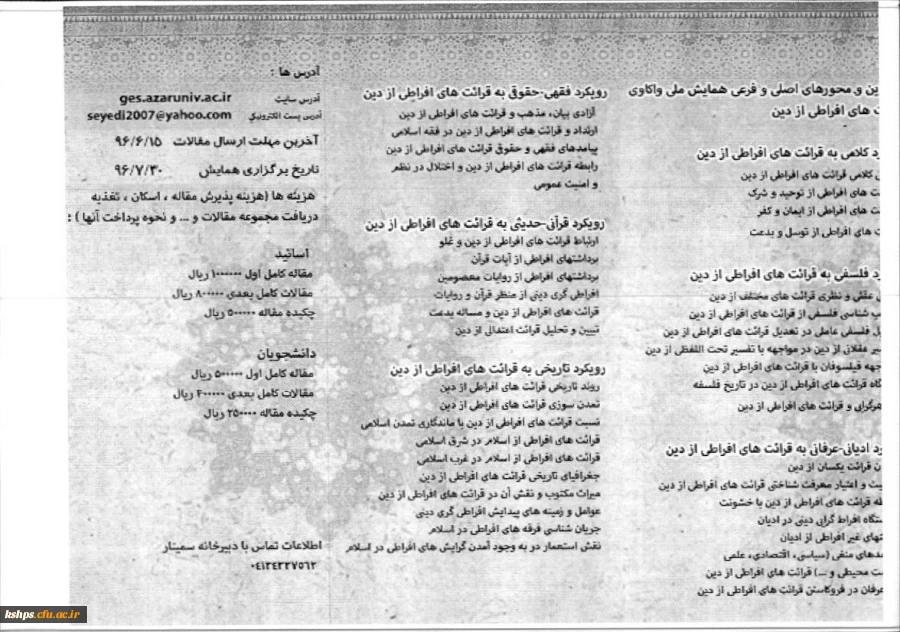 ین و محورهای اصلی و فرعی همایش ملی واکاوی
ت های افراطی از دین
د کلامی به قرائت های افراطی از دین
کلامی قرائت های افراطی از دین
ت های افراطی از توحید و شرک
ت های افراطی از ایمان و کفر
ت های افراطی از توسل و بدعت
د فلسفی به قرائت های افراطی از دین
عقلی و نظری قرائت های مختلف از دین
ب شناسی فلسفی از قرائت های افراطی از دین
ل فلسفی عاملی در تعدیل قرائت های افراطی از دین
یر عقلانی از دین در مواجهه با تفسیر تحت اللفظی از دین
جهه فیلسوفان با قرائت های افراطی از دین
گاه قرائت های افراطی از دین در تاریخ فلسفه
هرگرایی و قرائت های افراطی از دین
د ادیانی-عرفانی به قرائت های افراطی از دین
ن قرائت یکسان از دین
یت و اعتبار معرفت شناختی قرائت های افراطی از دین
طه قرائت های افراطی از دین با خشونت
ستگاه افراط گرایی دینی در ادیان
تهای غیر افراطی از ادیان
مدهای منفی (سیاسی، اقتصادی، علمی
ست محیطی و ...) قرائت های افراطی از دین
عرفان در فروکاستن قرائت های افراطی از دین
رویکرد فقهی-حقوقی به قرائت های افراطی از دین
آزادی بیان، مذهب و قرائت های افراطی از دین
ارتداد و قرائت های افراطی از دین در فقه اسلامی
پیامدهای فقهی و حقوق قرائت های افراطی از دین
رابطه قرائت های افراطی از دین و اختلال در نظم
و امنیت عمومی
رویکرد قرآنی-حدیثی به قرائت های افراطی از دین
ارتباط قرائت های افراطی از دین و غلو
برداشتهای افراطی از آیات قرآن
برداشتهای افراطی از روایات معصومین
افراطی گری دینی از منظر قرآن و روایات
قرائت های افراطی از دین و مساله بدعت
تبیین و تحلیل قرائت اعتدالی از دین
رویکرد تاریخی به قرائت های افراطی از دین
روند تاریخی قرائت های افراطی از دین
تمدن سوزی قرائت های افراطی از دین
نسبت قرائت های افراطی از دین با ماندگاری تمدن اسلامی
قرائت های افراطی از اسلام در شرق اسلامی
قرائت های افراطی از اسلام در غرب اسلامی
جغرافیای تاریخی قرائت های افراطی از دین
میراث مکتوب و نقش آن در قرائت های افراطی از دین
عوامل و زمینه های پیدایش افراطی گری دینی
جریان شناسی فرقه های افراطی در اسلام
نقش استعمار در به وجود آمدن گرایش های افراطی در اسلام
آدرس ها :
آدرس سایت ges.azaruniv.ac.ir
آدرس پست الکترونیکی seyedi2007@yahoo.com
آخرین مهلت ارسال مقالات ۹۶/۶/۱۵
تاریخ برگزاری همایش ۹۶/۷/۳۰
هزینه ها (هزینه پذیرش مقاله ، اسکان ، تغذیه
دریافت مجموعه مقالات و ... و نحوه پرداخت آنها) :
اساتید
مقاله کامل اول ۱۰۰۰۰۰۰ ریال
مقالات کامل بعدی ۸۰۰۰۰۰ ریال
چکیده مقاله ۵۰۰۰۰۰ ریال
دانشجویان
مقاله کامل اول ۵۰۰۰۰۰ ریال
مقالات کامل بعدی ۴۰۰۰۰۰ ریال
چکیده مقاله ۲۵۰۰۰۰ ریال
اطلاعات تماس با دبیرخانه سمینار
۰۴۱۳۴۳۲۷۵۶۲
kshps.cfu.ac.ir